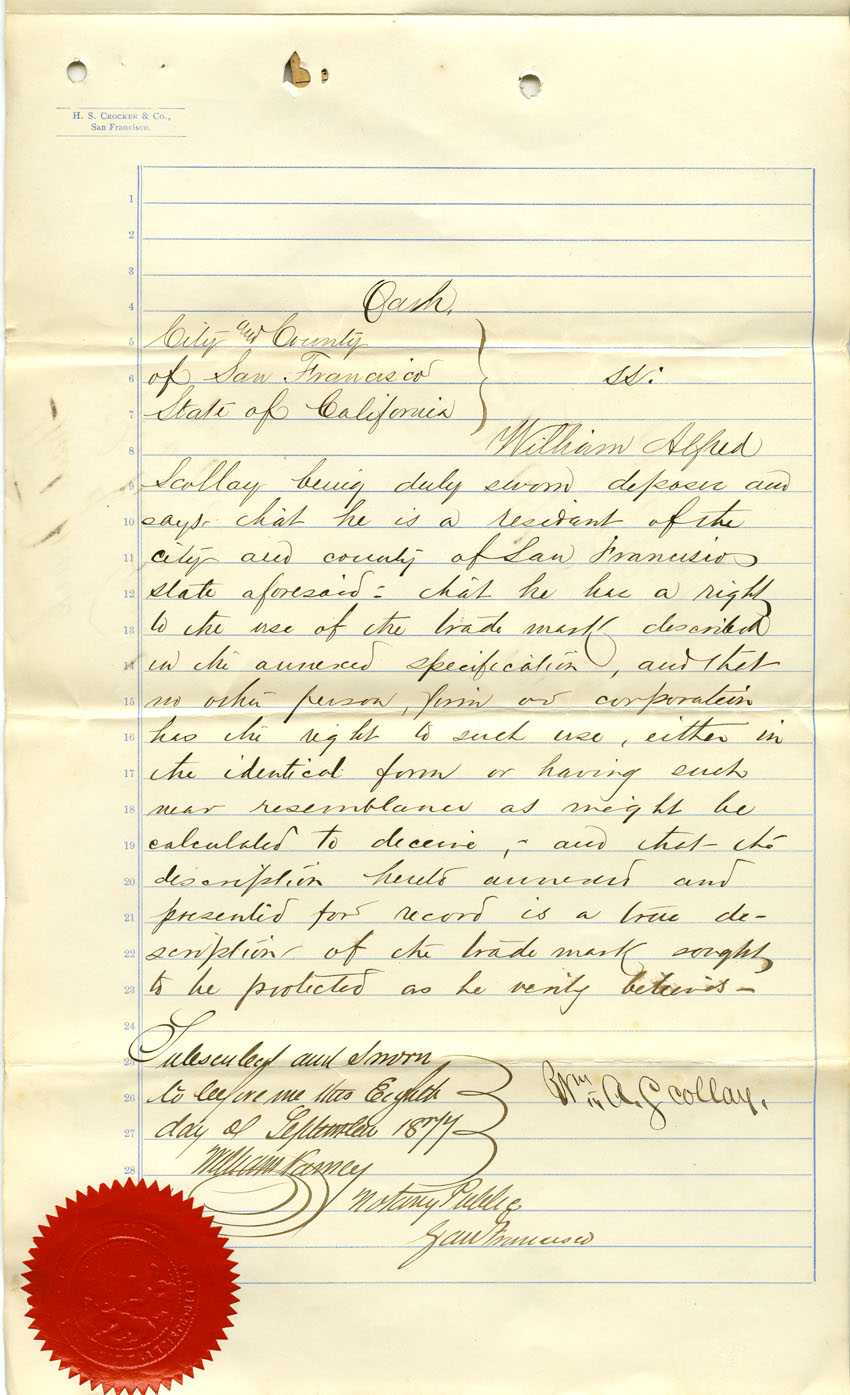 H. S. CROCKER & CO.,
San Francisco.
1
2
3
4 Oath.
5 City and County
6 of San Francisco ss:
7 State of California
8 William Alfred
9 Scollay being duly sworn deposes and
10 says that he is a resident of the
11 city and county of San Francisco
12 state aforesaid - that he has a right
13 to the use of the trade mark described
14 in the annexed specification, and that
15 no other person, firm or corporation
16 has the right to such use, either in
17 the identical form or having such
18 near resemblance as might be
19 calculated to deceive, - and that the
20 description hereto annexed and
21 presented for record is a true de-
22 scription of the trade mark sought
23 to be protected as he verily believes -
24
25 Subscribed and Sworn
26 to before me this Eighth Wm A. Scollay.
27 day of September 1877
28 William Harney
Notary Public
San Francisco